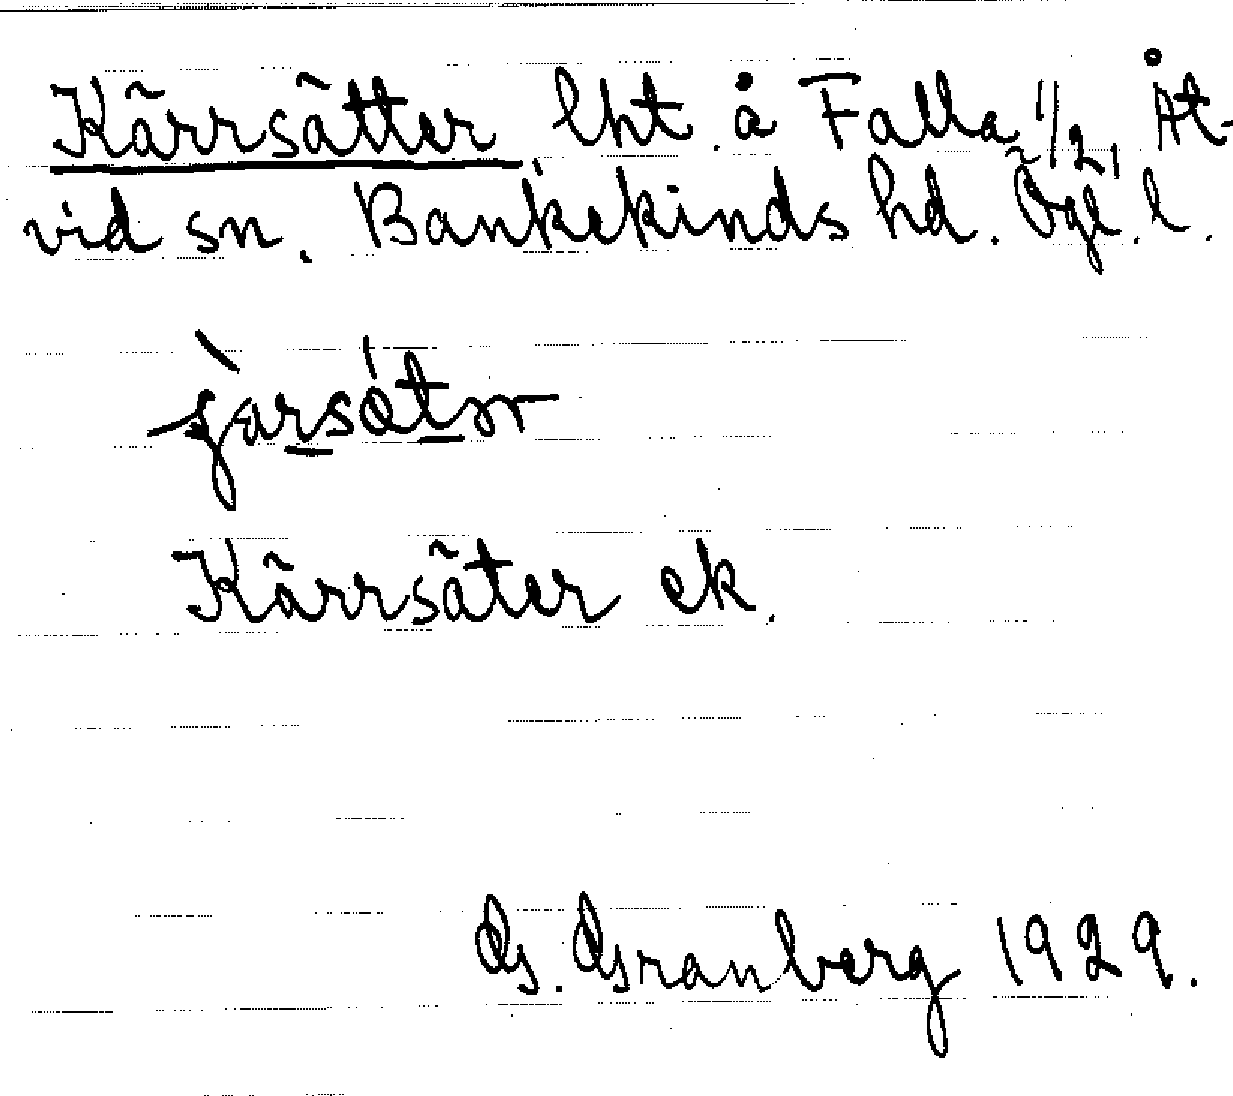 Kärrsätter lht. å Falla 1/2, Åt-
vid sn. Bankekinds hd. Ögl. l.
Kärrsäter ek.
G. Granberg 1929.